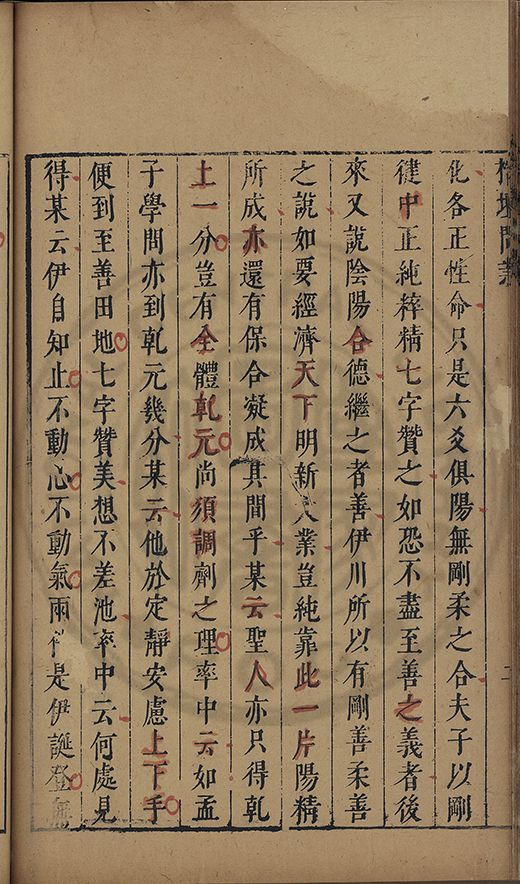 榕壇問業
化各正性命只是六爻俱陽無剛柔之合夫子以剛
健中正純粹精七字贊之如恐不盡至善之義者後
來又說陰陽合德繼之者善伊川所以有剛善柔善
之說如要經濟天下明新大業豈純靠此一片陽精
所成亦還有保合凝成其間乎某云聖人亦只得乾
上一分豈有全體乾元尚須調劑之理率中云如孟
子學問亦到乾元幾分某云他於定靜安慮上下手
便到至善田地七字贊美想不差池率中云何處見
得某云伊自知止不動心不動氣雨行是伊誕登無